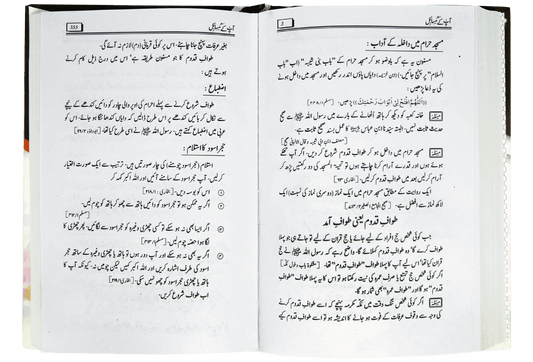 آپ کے مسائل
مسجد حرام میں داخلہ کے آداب:
مسنون یہ ہے کہ باوضو ہو کر مسجد حرام کے "باب بنی شیبہ" (اب "باب
السلام") پر پہنچ جائیں، دایاں پاؤں اندر رکھیں اور مسجد میں داخل ہونے
کی یہ دعا پڑھیں:
((اَللّٰهُمَّ افْتَحْ لِيْ اَبْوَابَ رَحْمَتِكَ)) پڑھیں۔
خانہ کعبہ کو دیکھ کر ہاتھ اٹھانے کے بارے میں رسول اللہ ﷺ سے صحیح
حدیث ثابت نہیں، البتہ سیدنا ابن عباس کا عمل بسند صحیح ثابت ہے۔
مسجد حرام میں داخل ہو کر طواف قدوم شروع کر دیں۔ اگر آپ تھکے
ہوئے ہوں اور قدرے آرام کرنا چاہتے ہوں تو تحیۃ المسجد کی دو رکعتیں پڑھ کر
آرام کر لیں بعد میں طواف قدوم کر لیں۔
ایک روایت کے مطابق مسجد حرام میں ایک نماز (دوسری نماز کی نسبت) ایک
لاکھ نماز سے افضل ہے۔
طواف قدوم یعنی طواف آمد
جب کوئی شخص حج افراد کے لیے جائے یا حج قران کے لیے تو جاتے ہی جو پہلا
طواف کرے گا وہ طواف قدوم کہلائے گا۔ واضح رہے کہ رسول اللہ ﷺ نے حج
قران کیا تھا اس لیے آپ کا پہلا طواف "طواف قدوم" تھا۔
اگر کوئی شخص حج تمتع یا صرف عمرہ کی نیت رکھتا ہو تو اس کا پہلا طواف "طواف
قدوم" ہو گا اور "طواف عمرہ" بھی شمار ہو گا۔
اگر کوئی شخص تنگ وقت میں مکہ مکرمہ پہنچے کہ اسے طواف قدوم کرنے
کی وجہ سے وقوف عرفات کے فوت ہو جانے کا اندیشہ ہو تو اسے طواف قدوم کیے
آپ کے مسائل
بغیر عرفات پہنچ جانا چاہئے، اس پر کوئی قربانی (دم) لازم نہ آئے گی۔
طواف قدوم کا جو مسنون طریقہ ہے اس میں درج ذیل کام کرنے
ہوتے ہیں:
اضطباع:
طواف شروع کرنے سے پہلے احرام کی اوپر والی چادر کو دائیں کندھے کے نیچے
سے نکال کر بائیں کندھے پر اس طرح ڈالیں کہ دایاں کندھا ننگا ہو جائے، اس کو
عربی میں اضطباع کہتے ہیں۔ رسول اللہ ﷺ نے اسی طرح کیا تھا۔
حجر اسود کا استلام:
استلام (حجر اسود کو چومنے) کی چار صورتیں ہیں، ترتیب سے ایک صورت اختیار
کر لیں۔ حجر اسود کے سامنے آئیں اور اللہ اکبر کہہ کر
اس کو بوسہ دیں۔
اگر یہ ممکن نہ ہو تو حجر اسود کو دائیں ہاتھ سے چھو کر ہاتھ کو چوم لیں۔
اگر ایسا بھی نہ ہو سکے تو کسی چھڑی وغیرہ کو حجر اسود سے لگائیں، پھر چھڑی کا
لگا ہوا حصہ چوم لیں۔
اگر یہ بھی نہ ہو سکے اور آپ دور ہوں تو ہاتھ یا چھڑی وغیرہ کے ساتھ حجر
اسود کی طرف اشارہ کریں اور اللہ اکبر کہیں لیکن چومیں نہ، کیونکہ آپ کا
ہاتھ یا چھڑی حجر اسود کو چھو نہیں سکی۔
اب طواف شروع کریں۔